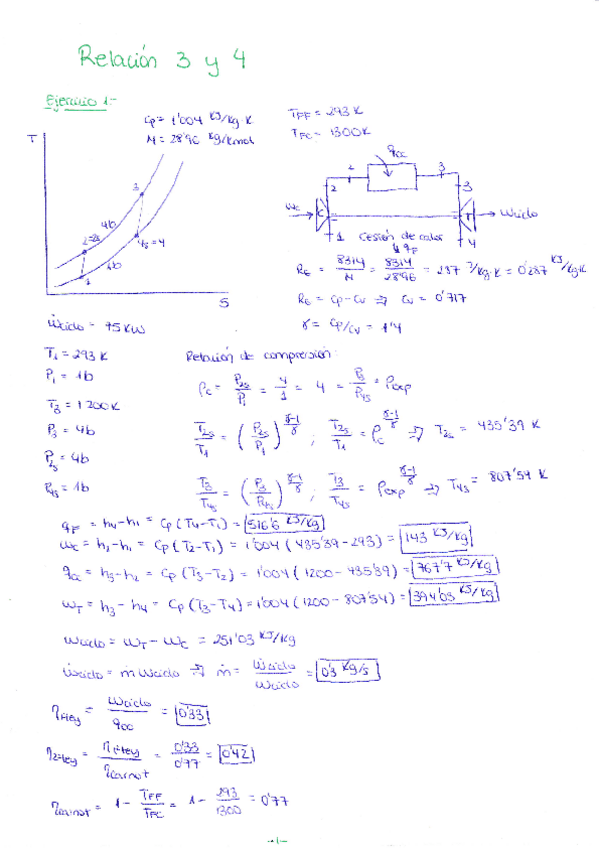 Relación 3 y 4
Ejercicio 1:-
Cp = 1'004 KJ/Kg·K
M = 28'96 Kg/Kmol
TFF = 293 K
TFC = 1300K
T
3
4b
2=2s
4s=4
1b
1
S
qcc
2
3
2
3
C
T
Wc
Wciclo
1
4
Cesión de calor
qF
Rg = 8314/M = 8314/28'96 = 287 J/Kg·K = 0'287 KJ/Kg·K
Rg = Cp - Cv ⇒ Cv = 0'717
γ = Cp/Cv = 1'4
Ẇciclo = 75 KW
T1 = 293 K
P1 = 1b
T3 = 1200K
P3 = 4b
P2s = 4b
P4s = 1b
Relación de compresión:
ρc = P2s/P1 = 4/1 = 4 = P3/P4s = ρexp
T2s/T1 = (P2s/P1)^(γ-1/γ) ; T2s/T1 = ρc^(γ-1/γ) ⇒ T2s = 435'39 K
T3/T4s = (P3/P4s)^(γ-1/γ) ; T3/T4s = ρexp^(γ-1/γ) ⇒ T4s = 807'54 K
qF = h4-h1 = Cp (T4-T1) = 516'6 KJ/Kg
wc = h2-h1 = Cp (T2-T1) = 1'004 (435'39-293) = 143 KJ/Kg
qcc = h3-h2 = Cp (T3-T2) = 1'004 (1200-435'39) = 767'7 KJ/Kg
wT = h3-h4 = Cp (T3-T4) = 1'004 (1200-807'54) = 394'03 KJ/Kg
Wciclo = WT - Wc = 251'03 KJ/Kg
Ẇciclo = ṁ Wciclo ⇒ ṁ = Ẇciclo/Wciclo = 0'3 Kg/s
η1ªley = Wciclo/qcc = 0'33
η2ªley = η1ªley/ηcarnot = 0'33/0'77 = 0'42
ηcarnot = 1 - TFF/TFC = 1 - 293/1300 = 0'77
-1-